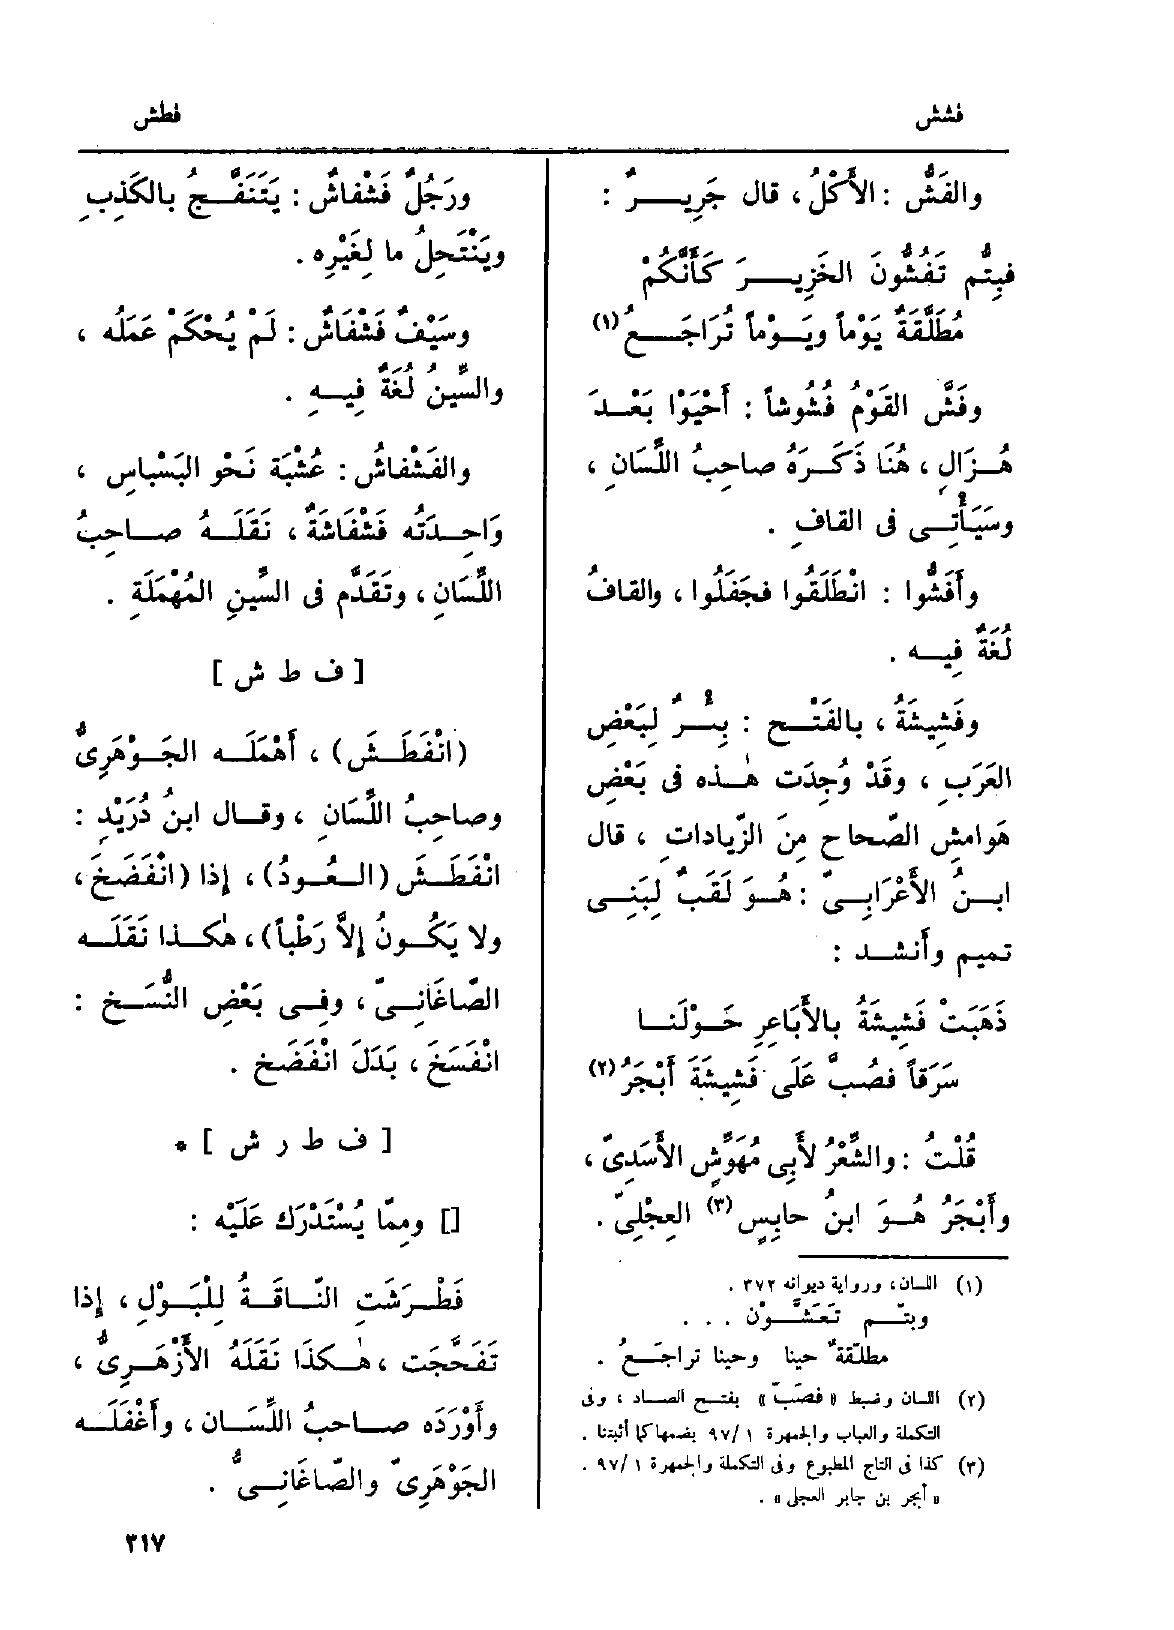 فشش
فطش
والفَشُّ : الأَكْلُ ، قال جَرِيرٌ :
فبِتُّم تَفُشُّونَ الخَزِيرَ كَأَنَّكُمْ
مُطَلَّقَةٌ يَوْماً ويَوْماً تُرَاجَعُ (١)
وفَشَّ القَوْمُ فُشُوشاً : أَحْيَوْا بَعْدَ
هُزَالٍ ، هُنَا ذَكَرَهُ صاحِبُ اللِّسَانِ ،
وسَيَأْتِى فى القافِ .
وأَفَشُّوا : انْطَلَقُوا فجَفَلُوا ، والقافُ
لُغَةٌ فِيه .
وفَشِيشَةُ ، بالفَتْح : بِئْرٌ لِبَعْضِ
العَرَبِ ، وقَدْ وُجِدَت هٰذه فى بَعْضِ
هَوامِشِ الصّحاحِ مِنَ الزّياداتِ ، قال
ابنُ الأَعْرَابِىّ : هُوَ لَقَبٌ لِبَنِى
تميم وأَنشد :
ذَهَبَتْ فَشِيشَةُ بالأَبَاعِرِ حَوْلَنا
سَرَقاً فصُبَّ عَلَى فَشِيشَةَ أَبْجَرُ (٢)
قُلْتُ : والشِّعْرُ لأَبِى مُهَوِّشٍ الأَسَدِىّ ،
وأَبْجَرُ هُوَ ابنُ حابِسٍ (٣) العِجْلِىّ .
(١) اللسان ، ورواية ديوانه ٣٧٢ .
وبتّم تَعَشَّوْن . . .
مطلّقةٌ حينا وحينا تراجَعُ .
(٢) اللسان وضبط « فصَبّ » بفتح الصاد ، وفى
التكملة والعباب والجمهرة ١ /٩٧ بضمها كما أثبتنا .
(٣) كذا فى التاج المطبوع وفى التكملة والجمهرة ١ /٩٧ .
« أبجر بن جابر العجلى » .
ورَجُلٌ فَشْفاشٌ : يَتَنَفَّجُ بالكَذِبِ
ويَنْتَحِلُ ما لِغَيْرِه .
وسَيْفٌ فَشْفَاشٌ : لَمْ يُحْكَمْ عَمَلُه ،
والسِّينُ لُغَةٌ فِيهِ .
والفَشْفاشُ : عُشْبَة نَحْو البَسْباسِ ،
وَاحِدَتُه فَشْفاشَةٌ ، نَقَلَهُ صاحِبُ
اللِّسَانِ ، وتَقَدَّم فى السِّينِ المُهْمَلَةِ .
[ ف ط ش ]
(انْفَطَشَ) ، أَهْمَلَه الجَوْهَرِىُّ
وصاحِبُ اللِّسَانِ ، وقال ابنُ دُرَيْدٍ :
انْفَطَشَ (العُودُ) ، إذا (انْفَضَخَ ،
ولا يَكُونُ إِلاَّ رَطْباً) ، هٰكذا نَقَلَه
الصّاغَانِىّ ، وفِى بَعْضِ النُّسَخِ :
انْفَسَخَ ، بَدَلَ انْفَضَخ .
[ ف ط ر ش ] *
[] ومِمّا يُسْتَدْرَك عَلَيْه :
فَطْرَشَتِ النّاقَةُ لِلْبَوْلِ ، إذا
تَفَحَّجَت ، هٰكذَا نَقَلَهُ الأَزْهَرِىُّ ،
وأَوْرَدَه صاحبُ اللِّسَان ، وأَغْفَلَه
الجَوْهَرِىّ والصّاغَانِىُّ .
٣١٧